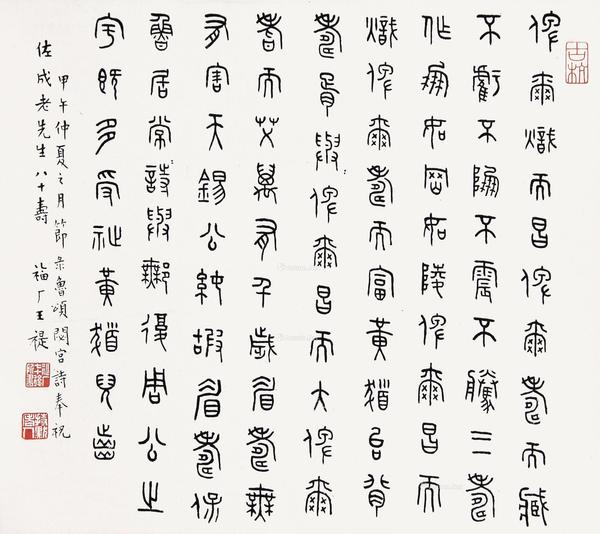 古杭
俾爾熾而昌俾爾壽而臧
不虧不崩不震不騰三壽
作朋如岡如陵俾爾昌而
熾俾爾壽而富黃髮台背
壽胥與俾爾昌而大俾爾
耆而艾萬有千歲眉壽無
有害天錫公純嘏眉壽保
魯居常試與鄦復周公之
宇既多受祉黃髮兒齒
甲午仲夏之月節彔魯頌閟宮詩奉祝
佐成老先生八十壽 福厂王禔